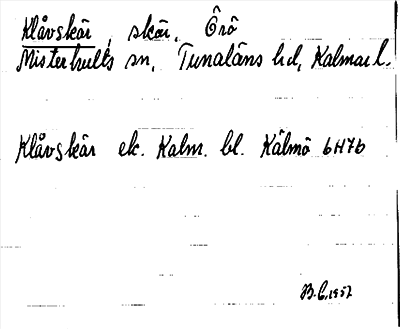 Klåvskär, skär, Örö
Misterhults sn, Tunaläns hd, Kalmar l.
Klåvskär ek. Kalm. bl. Kålmö 6H7b
B.C. 1957